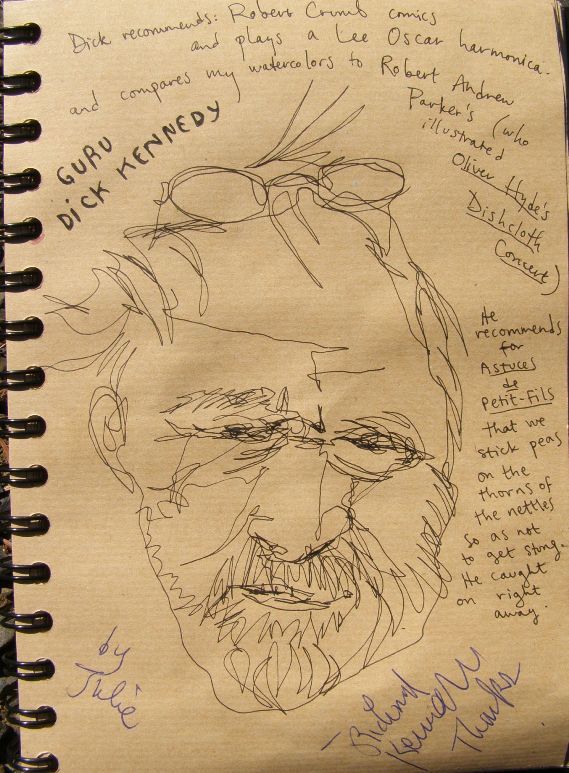 Dick recommends: Robert Crumb comics
and plays a Lee Oscar harmonica.
and compares my watercolors to Robert Andrew
Parker's (who
illustrated
Oliver Hyde's
Dishcloth
Concert)
GURU
DICK KENNEDY
He
recommends
for
Astuces
de
Petit-Fils
that we
stick peas
on the
thorns of
the nettles
so as not
to get stung.
He caught
on right
away.
by
Julie
Richard
Kennedy
Thanks